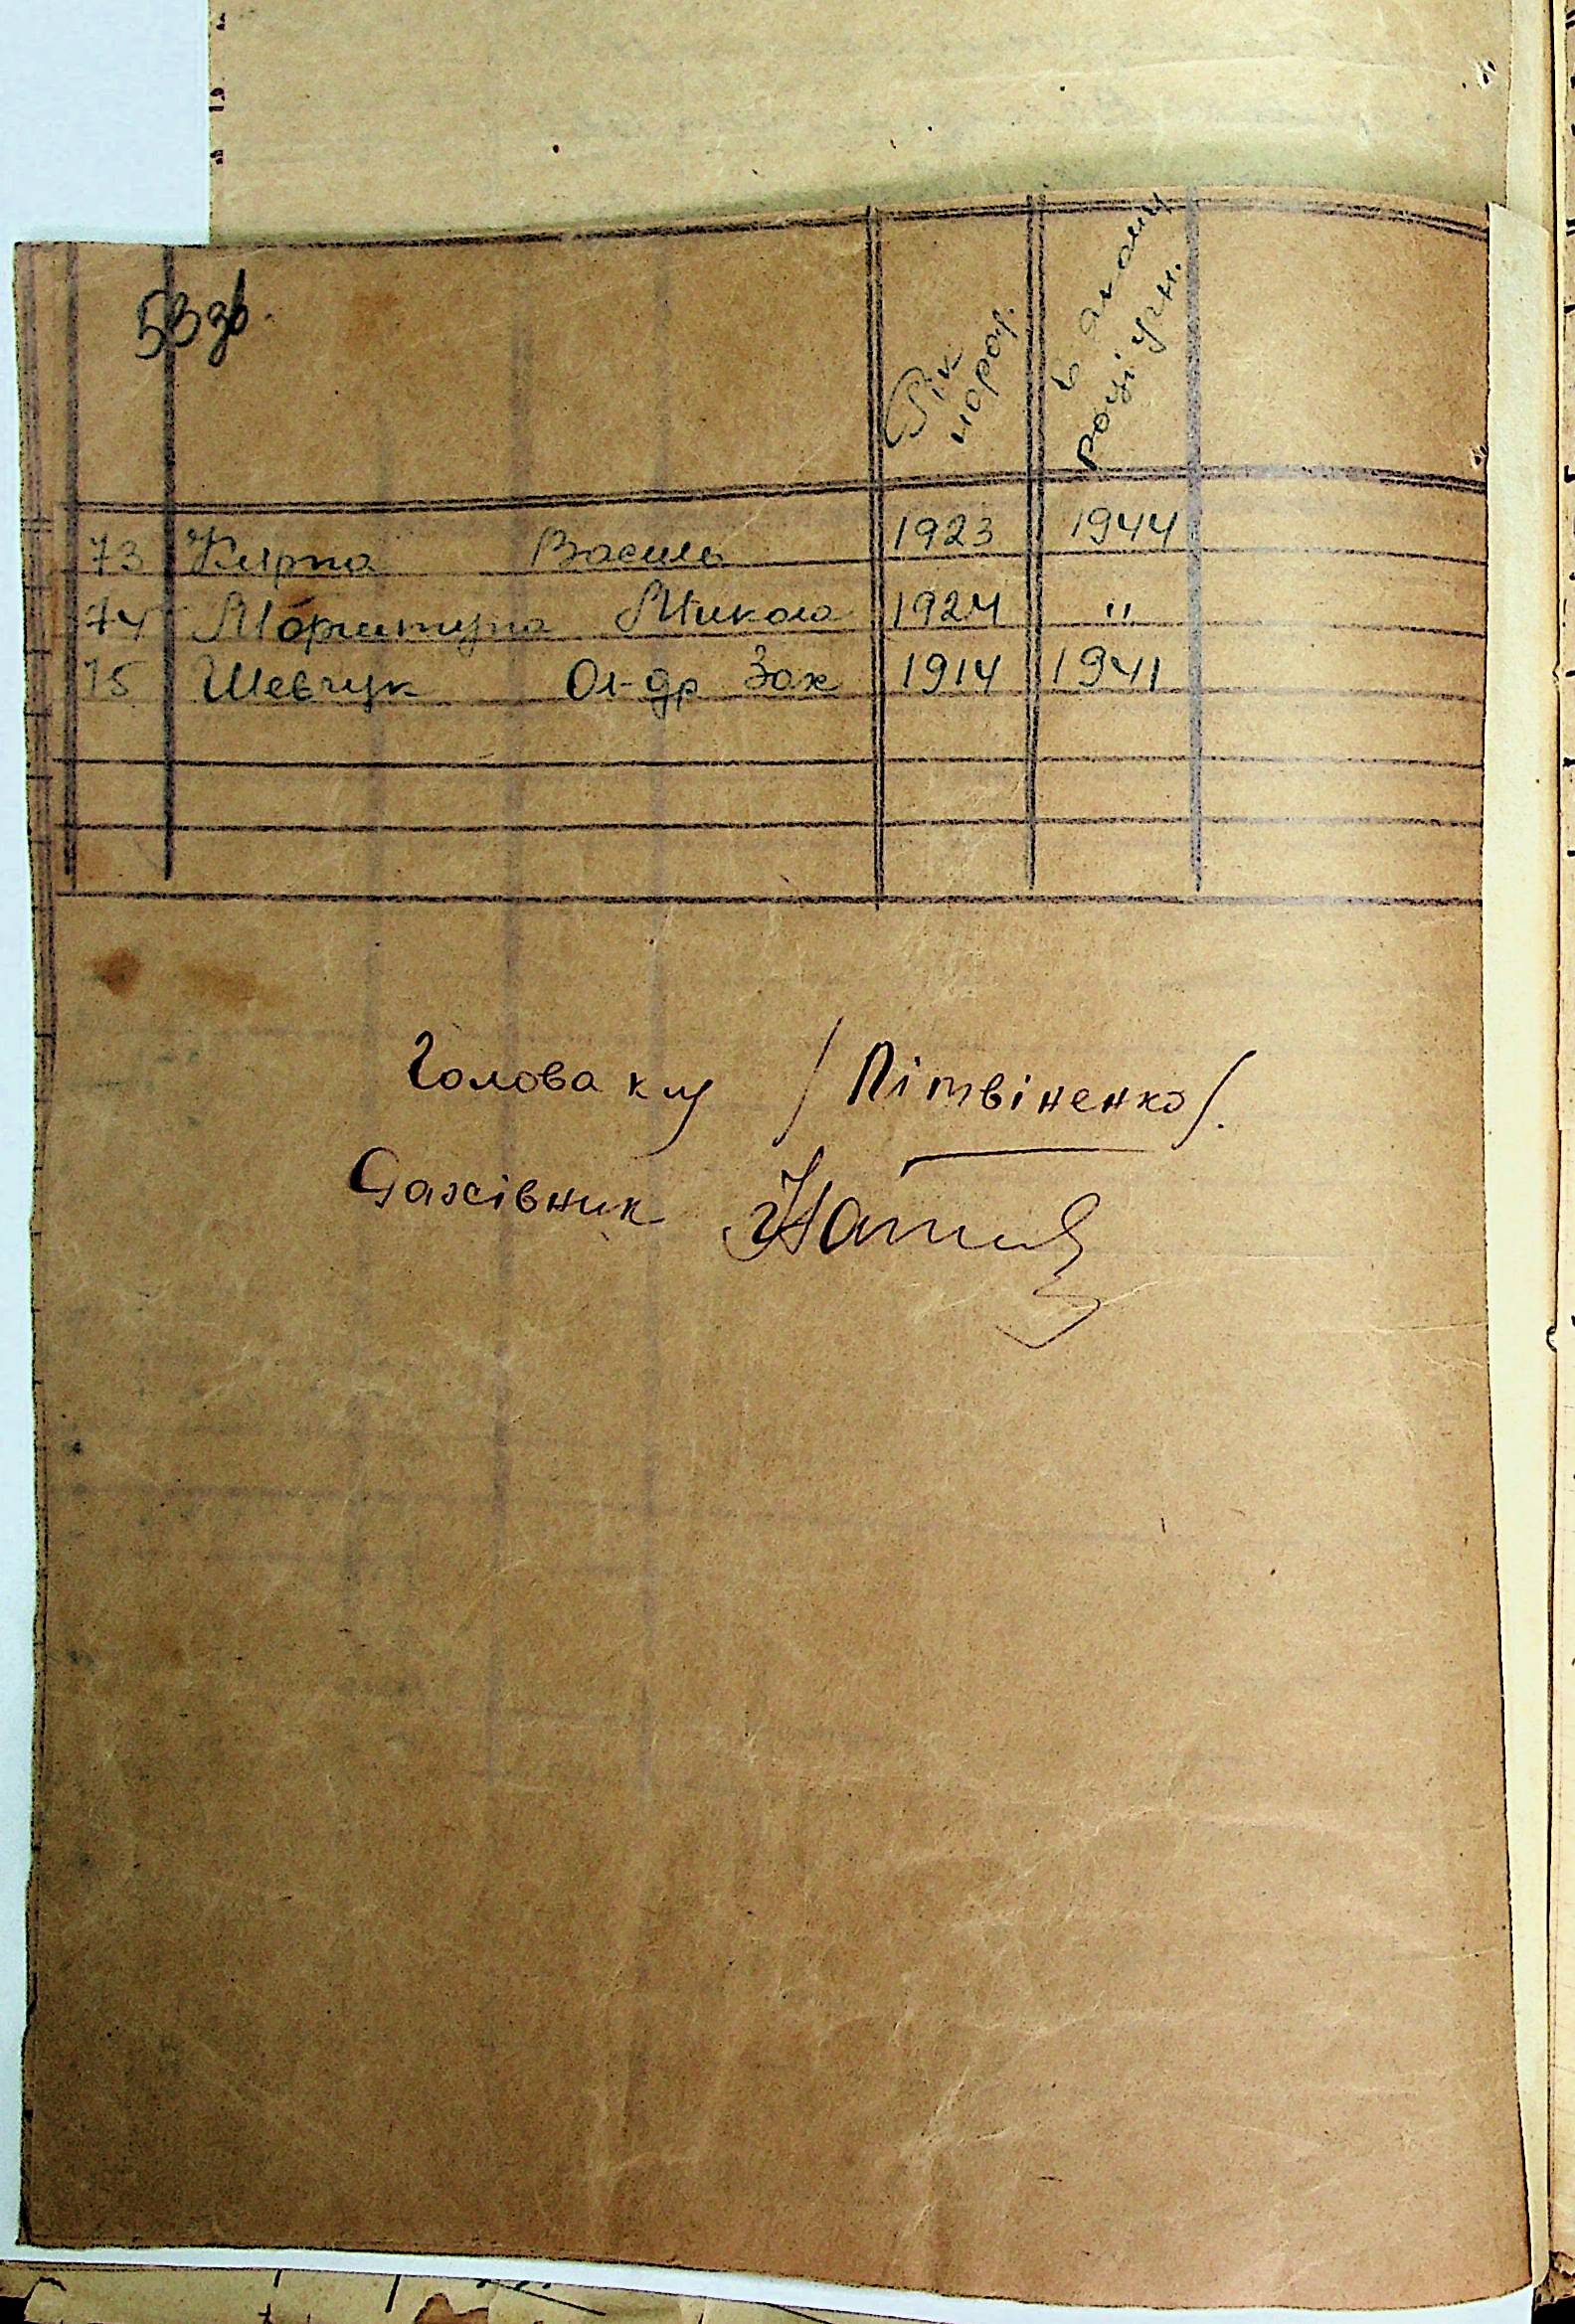 53 зв.
Рік народ.
в якому році уч.
73 Кирпа Василь 1923 1944
74 Микола 1924 "
75 Шевчук Ол-др Зах 1914 1941
Голова к м /Літвіненко/.
Рахівник